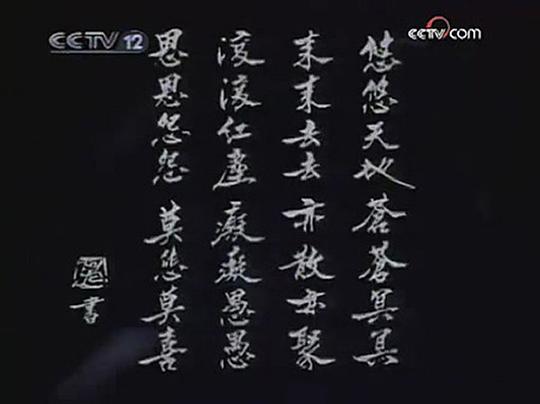 CCTV 12
CCTV.com
悠悠天地 蒼蒼冥冥
来来去去 亦散亦聚
滚滚红塵 癡癡愚愚
恩恩怨怨 莫悲莫喜
書